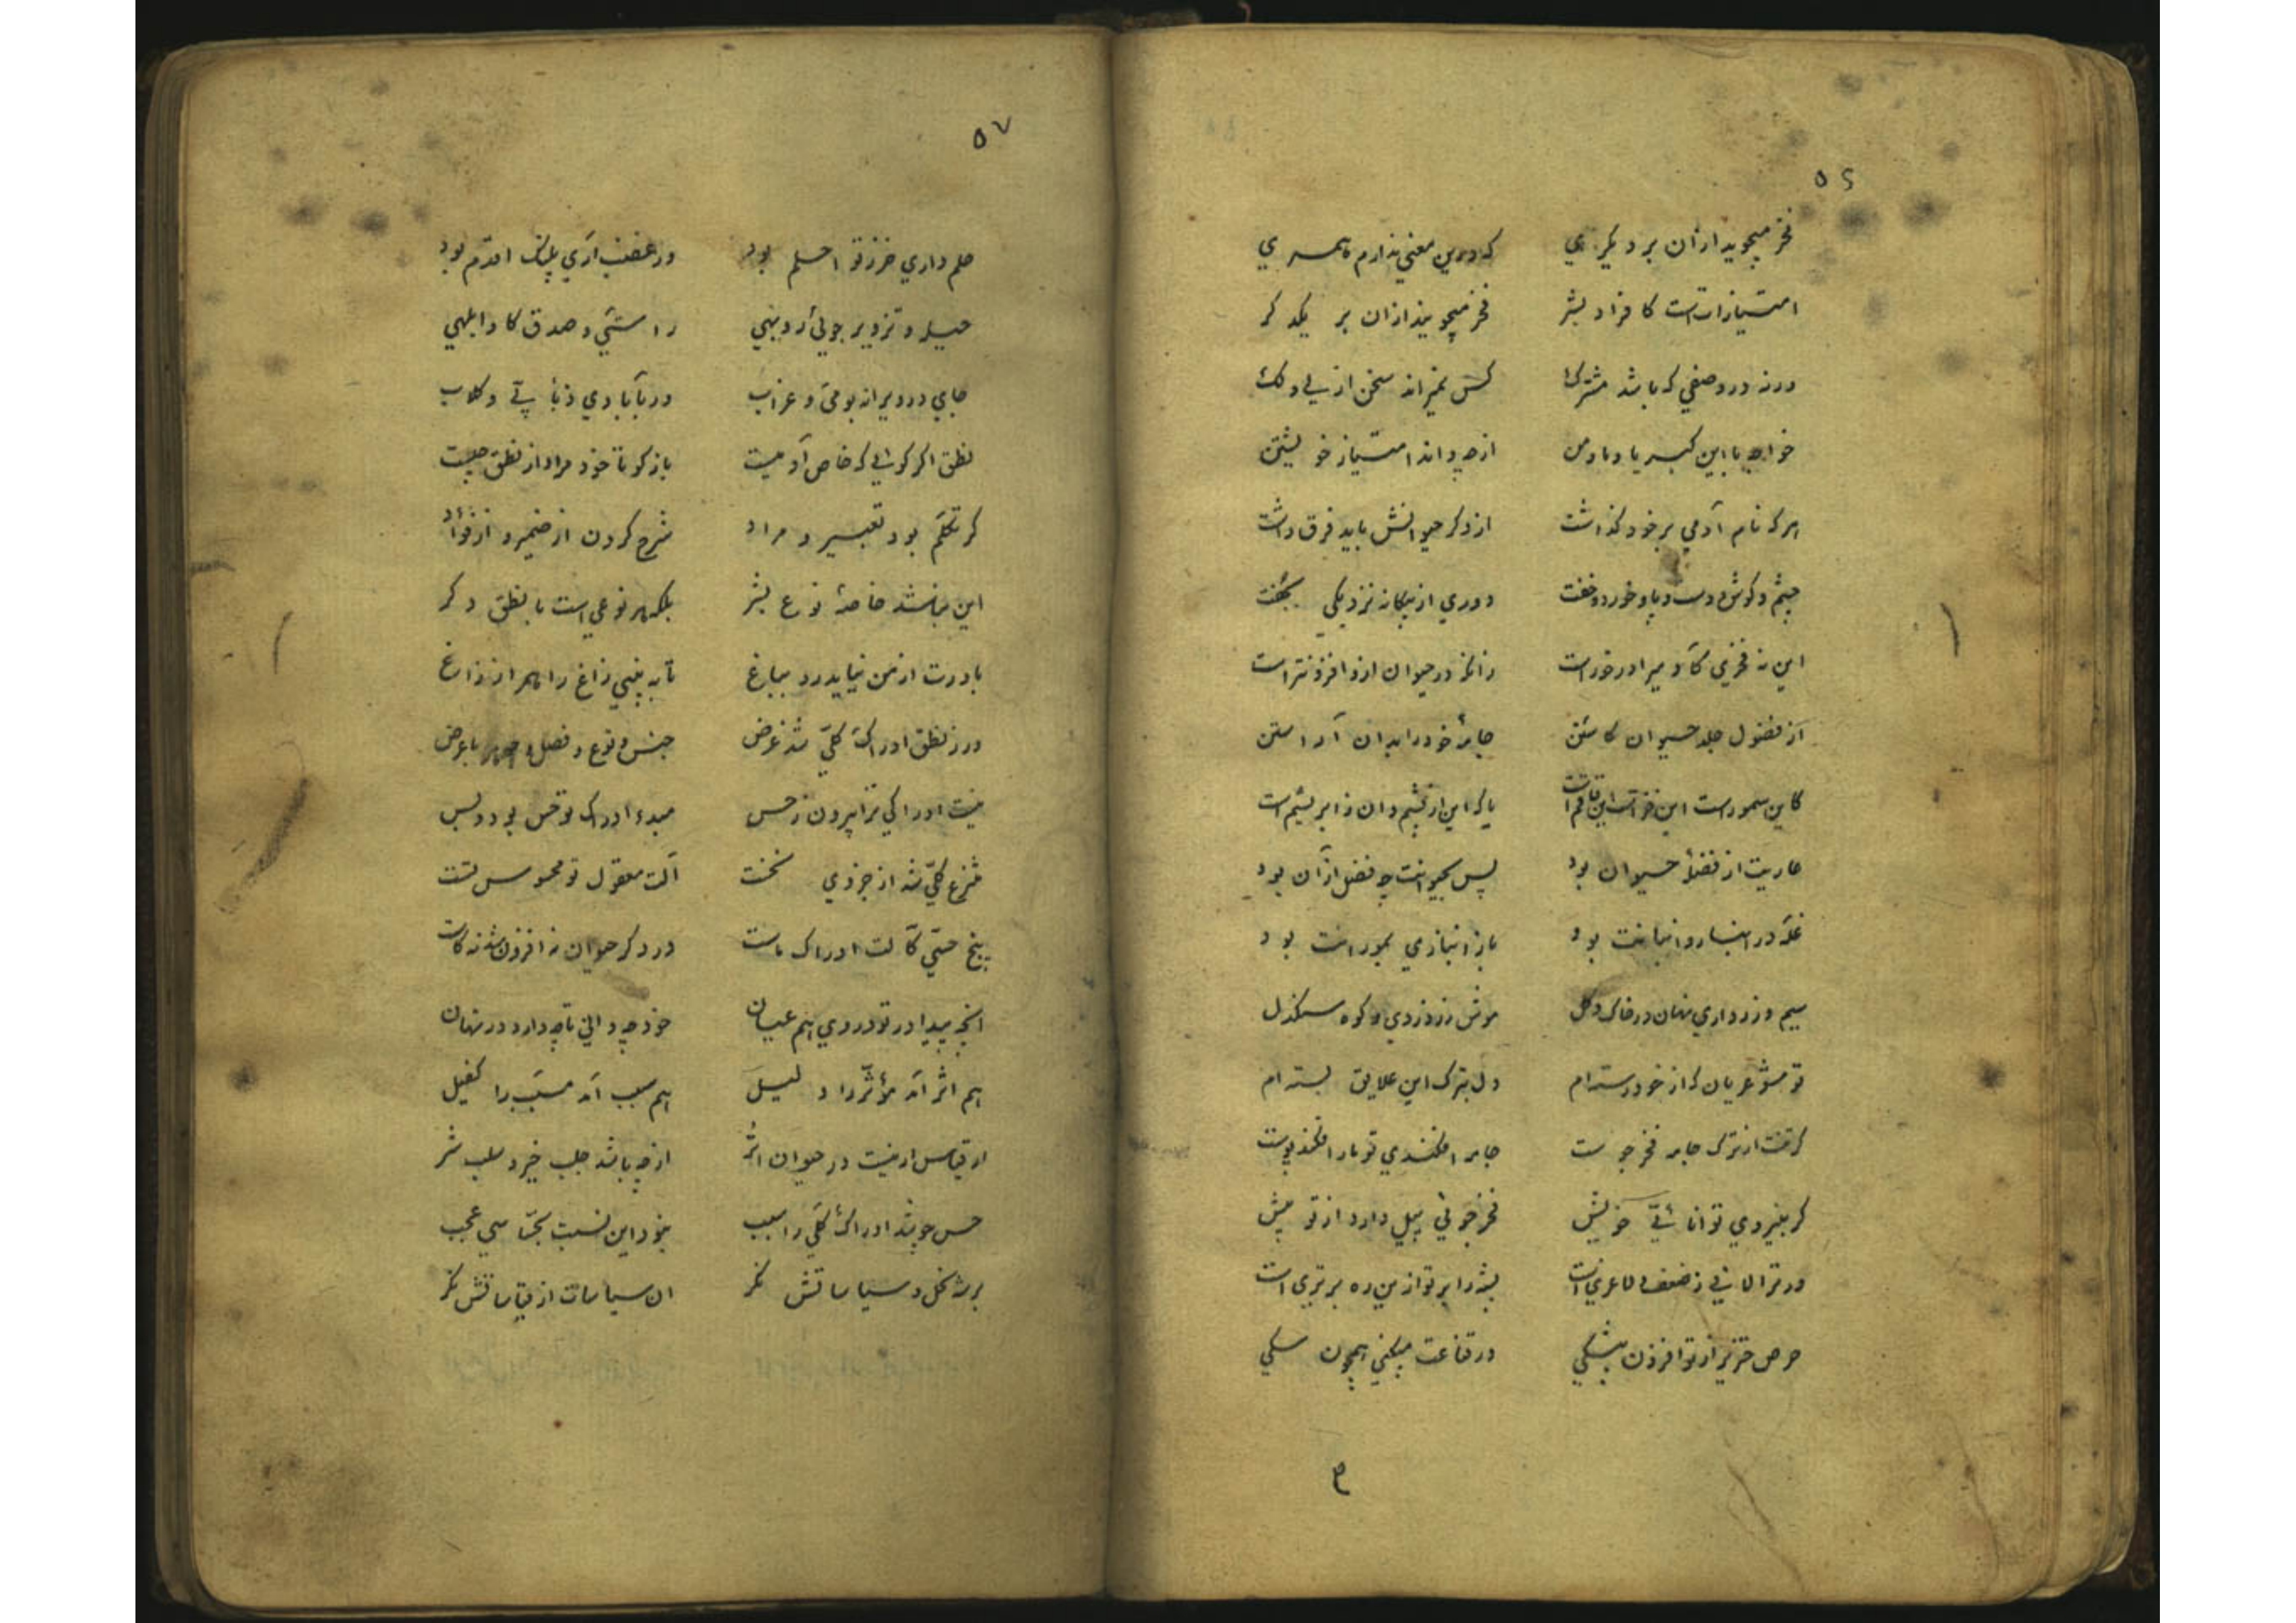 ۵۶
فخر میجوید ازان بر دیگری که درین معنی ندارم همسری
امتیازاتست کافراد بشر فخر میجویند ازان بر یکدگر
ورنه در وصفی که باشد مشترک کس نمیراند سخن از بی و لک
خواجه با این کبریا و ما و من از چه داند امتیاز خویشتن
هر که نام آدمی بر خود گذاشت از دگر حیوانش باید فرق داشت
چشم و گوش و دست و پا و خورد و خفت دوری از بیگانه نزدیکی بجفت
این نه فخری کآدمی را درخورست زانکه در حیوان ازو افزونترست
از فضول جلد حیوان کاستن جامهٔ خود را بدان آراستن
کاین سمورست این خزاست این قاقم است یا که این از پشم و ان ز ابریشم است
عاریت از فضلهٔ حیوان بود پس بحیوانت چه فضل ازان بود
غله در انبار و انبانت بود باز انبازی بمورانت بود
سیم و زر داری نهان در خاک و گل موش زر دزدی و کوه سنگدل
تو مشو عریان که از خود رسته ام دل بترک این علایق بسته ام
گر تنت از ترک جامه فخر جوست جامه افکندی تو مار افکند پوست
گر بنیروی توانائی خویش فخر جوئی پیل دارد از تو بیش
ور ترا لافی ز ضعف و لاغری است پشه را بر تو ازین ره برتری است
حرص خنزیر از تو افزون بیشکی ور قناعت میکنی همچون سگی
۵۷
حلم داری خر ز تو احلم بود ور غضب آری پلنگ اقدم بود
حیله و تزویر جوئی رو بهی راستی و صدق گاو ابلهی
جای در ویرانه بومی و غراب ور بآبادی ذبابی و کلاب
نطق اگر گوئی که خاص آدمیت بازگو تا خود مراد از نطق چیست
گر تکلم بود تعبیر و مراد شرح کردن از ضمیر و از فؤاد
این نباشد خاصهٔ نوع بشر بلکه هر نوعی است با نطق دگر
باورت از من نیاید رو بباغ تا به بینی زاغ را همراز زاغ
ور ز نطق ادراک کلی شد غرض جنس و نوع و فصل و جوهر با عرض
نیست ادراکی ترا بیرون ز حس مبدء ادراک تو حس بود و بس
منتزع کلی شد از جزوی نخست آلت معقول تو محسوس تست
پنج حسی کآلت ادراک ماست در دگر حیوان نه افزون شد نه کاست
انچه پیدا در تو در وی هم عیان خود چه دانی تا چه دارد در نهان
هم اثر آمد مؤثر را دلیل هم سبب آمد مسبب را کفیل
از قیاس ار نیست در حیوان اثر از چه باشد جلب خیر و سلب شر
حس چو شد ادراک کلی را سبب نبود این نسبت بحساسی عجب
برشه نحل و سیاساتش نگر ان سیاسات از قیاساتش نگر